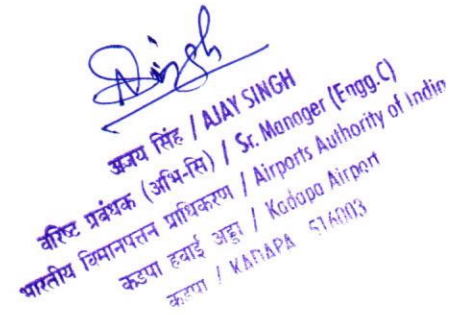 Singh
अजय सिंह / AJAY SINGH
वरिष्ट प्रबंधक (अभि-सि) / Sr. Manager (Engg.C)
भारतीय विमानपत्तन प्राधिकरण / Airports Authority of India
कडपा हवाई अड्डा / Kadapa Airport
कडपा / KADAPA 516003